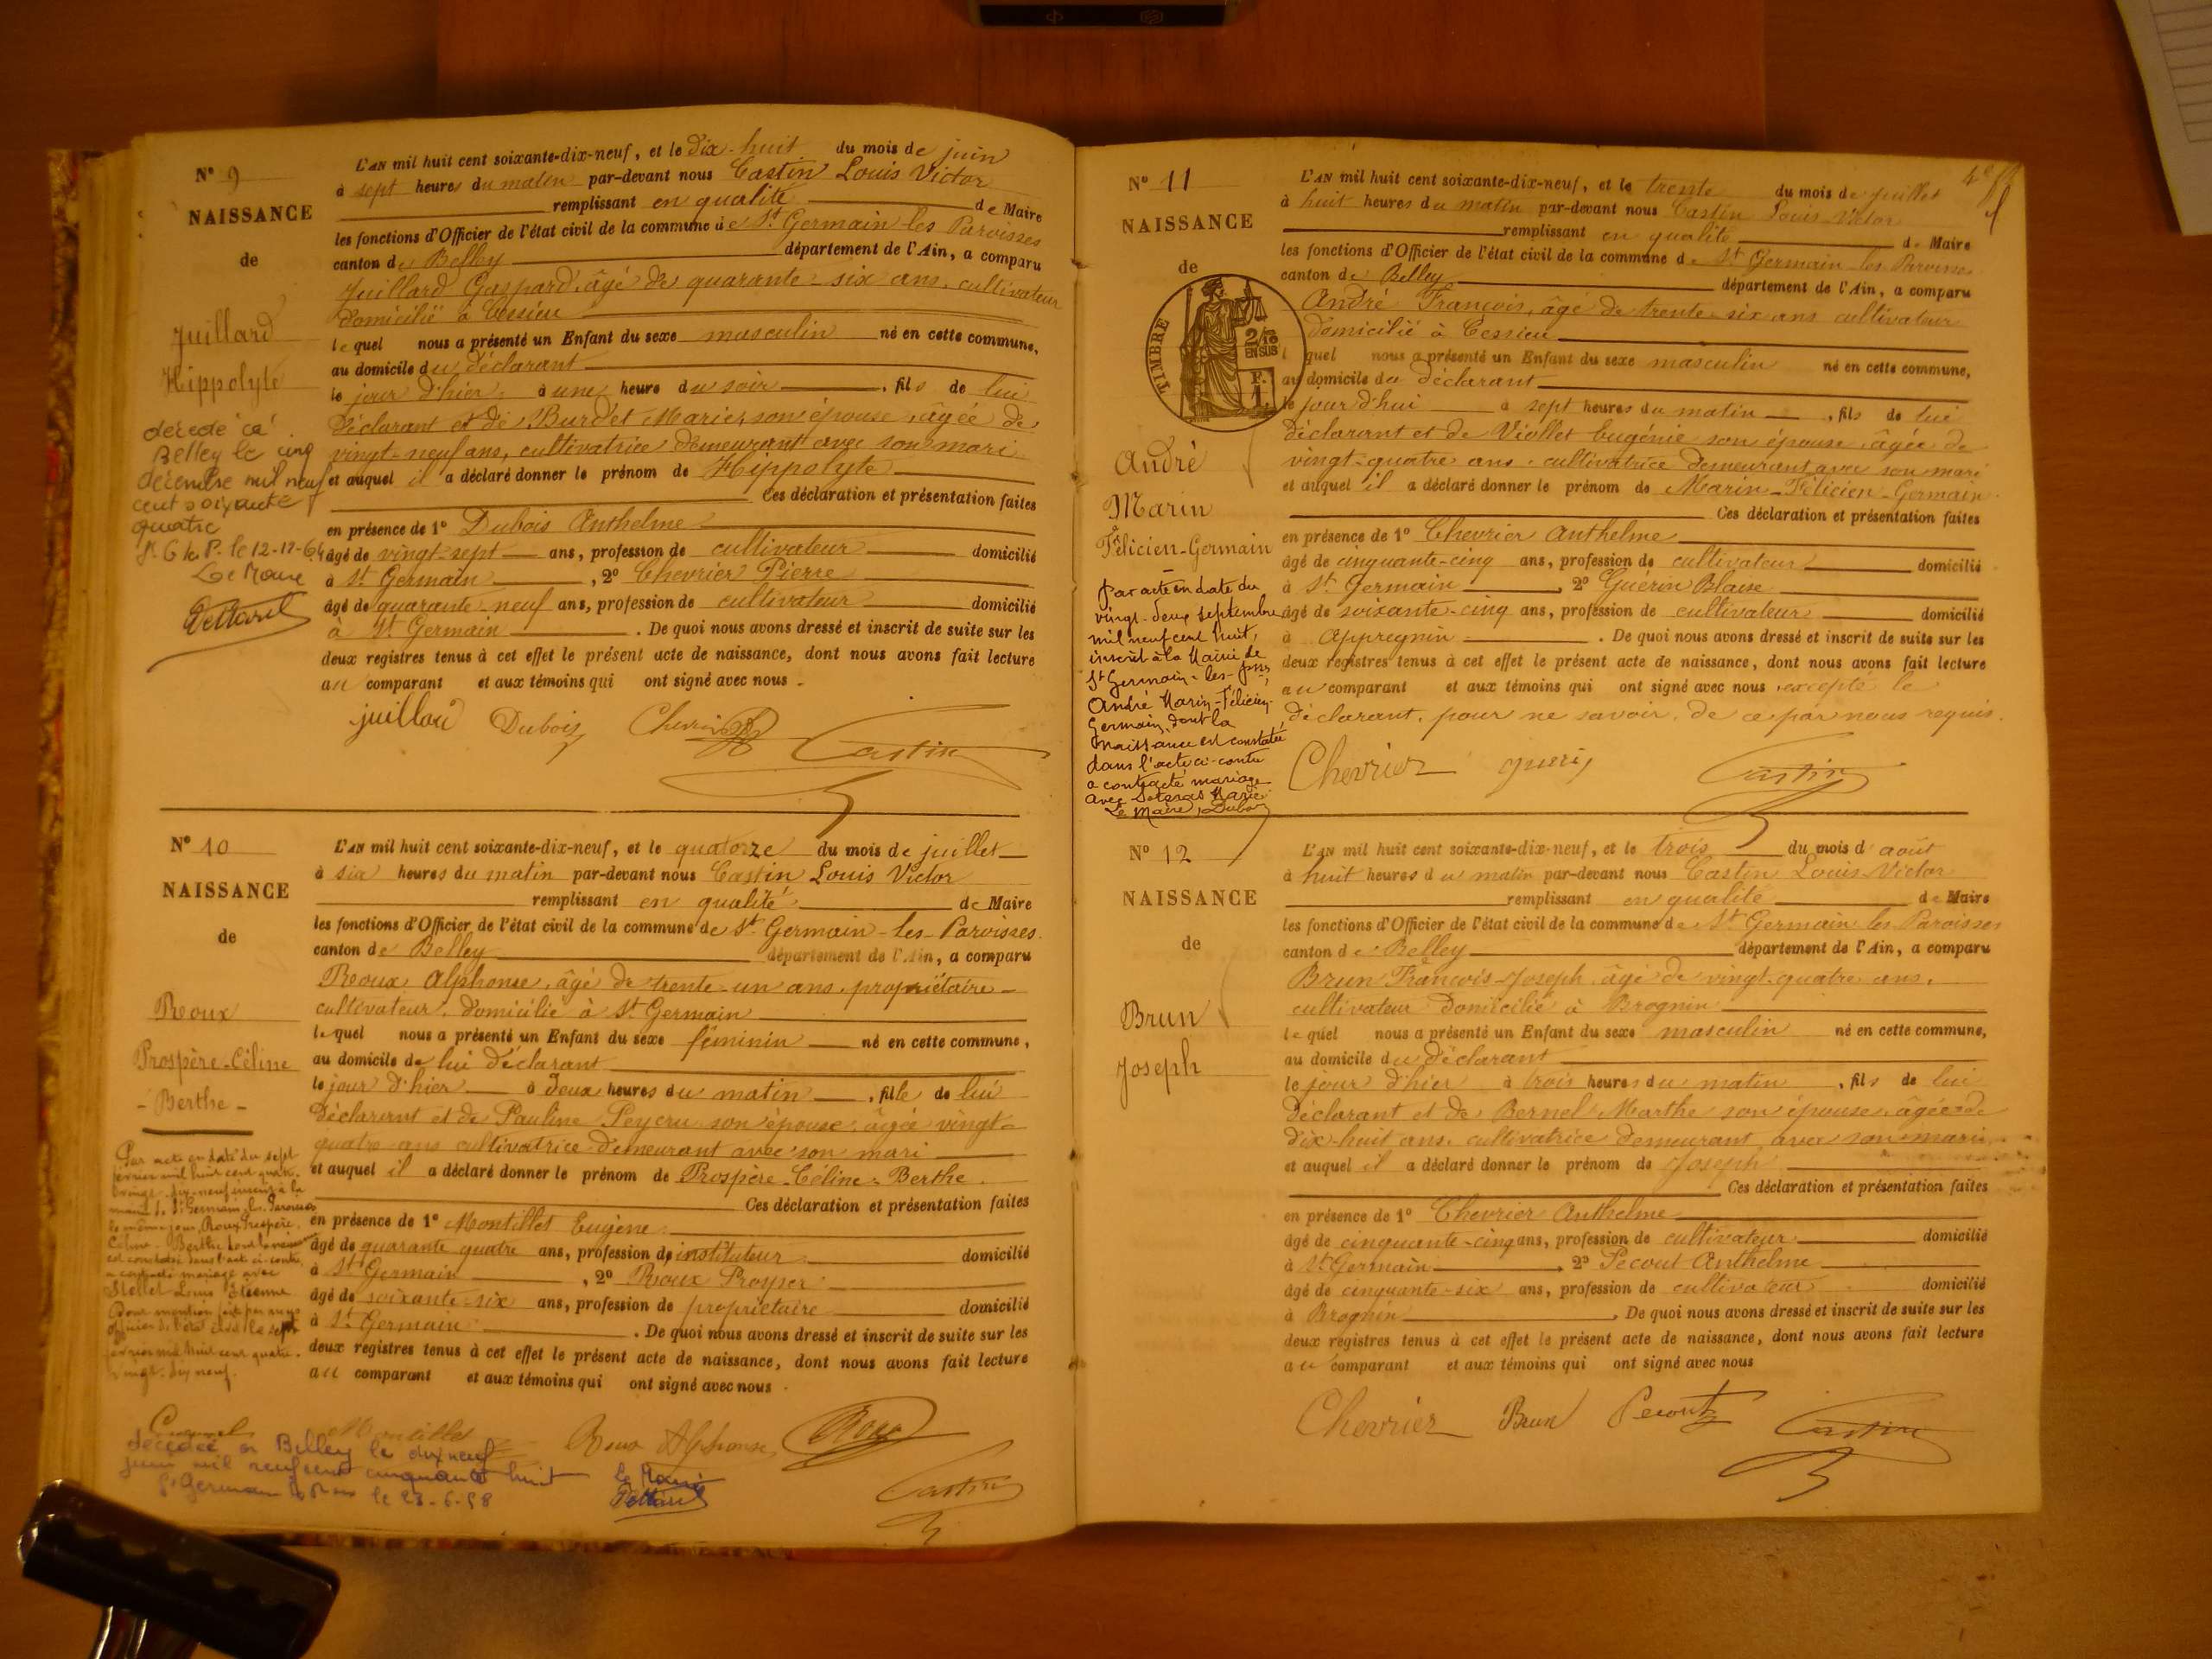 N° 9
NAISSANCE
de
Juillard
Hippolyte
décédé à
Belley le cinq
décembre mil neuf
cent soixante
quatre
St G les P. le 12-12-64
Le Maire
L'AN mil huit cent soixante-dix-neuf, et le dix-huit du mois de juin
à sept heures du matin par-devant nous Castin Louis Victor
remplissant en qualité de Maire
les fonctions d'Officier de l'état civil de la commune de St Germain les Paroisses
canton de Belley département de l'Ain, a comparu
Juillard Gaspard, âgé de quarante-six ans, cultivateur
domicilié à Cessieu
lequel nous a présenté un Enfant du sexe masculin né en cette commune,
au domicile du déclarant
le jour d'hier, à une heure du soir, fils de lui
déclarant et de Burdet Marie, son épouse, âgée de
vingt-neuf ans, cultivatrice demeurant avec son mari
et auquel il a déclaré donner le prénom de Hippolyte
Ces déclaration et présentation faites
en présence de 1° Dubois Anthelme
âgé de vingt-sept ans, profession de cultivateur domicilié
à St Germain, 2° Chevrier Pierre
âgé de quarante-neuf ans, profession de cultivateur domicilié
à St Germain. De quoi nous avons dressé et inscrit de suite sur les
deux registres tenus à cet effet le présent acte de naissance, dont nous avons fait lecture
au comparant et aux témoins qui ont signé avec nous.
juillard Dubois Chevrier Castin
N° 10
NAISSANCE
de
Roux
Prospère-Céline
- Berthe -
Par acte en date du sept
février mil huit cent quatre
vingt-dix-neuf inscrit à la
mairie de St Germain les Paroisses
le même jour, Roux Prospère
Céline-Berthe dont la naissance
est constatée dans l'acte ci-contre
a contracté mariage avec
Louis Etienne
Pour mention faite par nous
officier de l'état civil le sept
février mil huit cent quatre-
vingt-dix neuf.
L'AN mil huit cent soixante-dix-neuf, et le quatorze du mois de juillet
à six heures du matin par-devant nous Castin Louis Victor
remplissant en qualité de Maire
les fonctions d'Officier de l'état civil de la commune de St Germain-les-Paroisses.
canton de Belley département de l'Ain, a comparu
Roux Alphonse, âgé de trente-un ans, propriétaire-
cultivateur, domicilié à St Germain
lequel nous a présenté un Enfant du sexe féminin né en cette commune,
au domicile de lui déclarant
le jour d'hier à deux heures du matin, fille de lui
déclarant et de Pauline Peycru son épouse, âgée vingt-
quatre ans cultivatrice demeurant avec son mari
et auquel il a déclaré donner le prénom de Prospère-Céline-Berthe
Ces déclaration et présentation faites
en présence de 1° Montillet Eugène
âgé de quarante quatre ans, profession d'instituteur domicilié
à St Germain, 2° Roux Prosper
âgé de soixante-six ans, profession de propriétaire domicilié
à St Germain. De quoi nous avons dressé et inscrit de suite sur les
deux registres tenus à cet effet le présent acte de naissance, dont nous avons fait lecture
au comparant et aux témoins qui ont signé avec nous.
Montillet Roux Alphonse Roux
décédée à Belley le dix neuf
juin mil neuf cent cinquante huit Le Maire
St Germain les Par le 23-6-58
Castin
N° 11
NAISSANCE
de
TIMBRE
2/10
EN SUS
F.
1
André
Marin
Félicien-Germain
Par acte en date du
vingt-deux septembre
mil neuf cent huit,
inscrit à la Mairie de
St Germain-les-Psses,
André Marin-Félicien-
Germain, dont la
naissance est constatée
dans l'acte ci-contre
a contracté mariage
avec Marie
Le Maire, Dubois
L'AN mil huit cent soixante-dix-neuf, et le trente du mois de juillet
à huit heures du matin par-devant nous Castin Louis Victor
remplissant en qualité de Maire
les fonctions d'Officier de l'état civil de la commune de St Germain les Paroisses
canton de Belley département de l'Ain, a comparu
André François, âgé de trente-six ans cultivateur
domicilié à Cessieu
lequel nous a présenté un Enfant du sexe masculin né en cette commune,
au domicile du déclarant
le jour d'hui à sept heures du matin, fils de lui
déclarant et de Viollet Eugénie son épouse, âgée de
vingt-quatre ans, cultivatrice demeurant avec son mari
et auquel il a déclaré donner le prénom de Marin-Félicien-Germain.
Ces déclaration et présentation faites
en présence de 1° Chevrier Anthelme
âgé de cinquante-cinq ans, profession de cultivateur domicilié
à St Germain, 2° Guérin Blaise
âgé de soixante-cinq ans, profession de cultivateur domicilié
à Appregnin. De quoi nous avons dressé et inscrit de suite sur les
deux registres tenus à cet effet le présent acte de naissance, dont nous avons fait lecture
au comparant et aux témoins qui ont signé avec nous, excepté le
déclarant, pour ne savoir, de ce par nous requis.
Chevrier Castin
N° 12
NAISSANCE
de
Brun
Joseph
L'AN mil huit cent soixante-dix-neuf, et le trois du mois d'août
à huit heures du matin par-devant nous Castin Louis-Victor
remplissant en qualité de Maire
les fonctions d'Officier de l'état civil de la commune de St Germain les Paroisses
canton de Belley département de l'Ain, a comparu
Brun François-Joseph, âgé de vingt-quatre ans,
cultivateur domicilié à Brognin
lequel nous a présenté un Enfant du sexe masculin né en cette commune,
au domicile du déclarant
le jour d'hier à trois heures du matin, fils de lui
déclarant et de Bernel Marthe son épouse, âgée de
dix-huit ans, cultivatrice demeurant avec son mari
et auquel il a déclaré donner le prénom de Joseph
Ces déclaration et présentation faites
en présence de 1° Chevrier Anthelme
âgé de cinquante-cinq ans, profession de cultivateur domicilié
à St Germain, 2° Pecout Anthelme
âgé de cinquante-six ans, profession de cultivateur domicilié
à Brognin. De quoi nous avons dressé et inscrit de suite sur les
deux registres tenus à cet effet le présent acte de naissance, dont nous avons fait lecture
au comparant et aux témoins qui ont signé avec nous
Chevrier Brun Pecout Castin